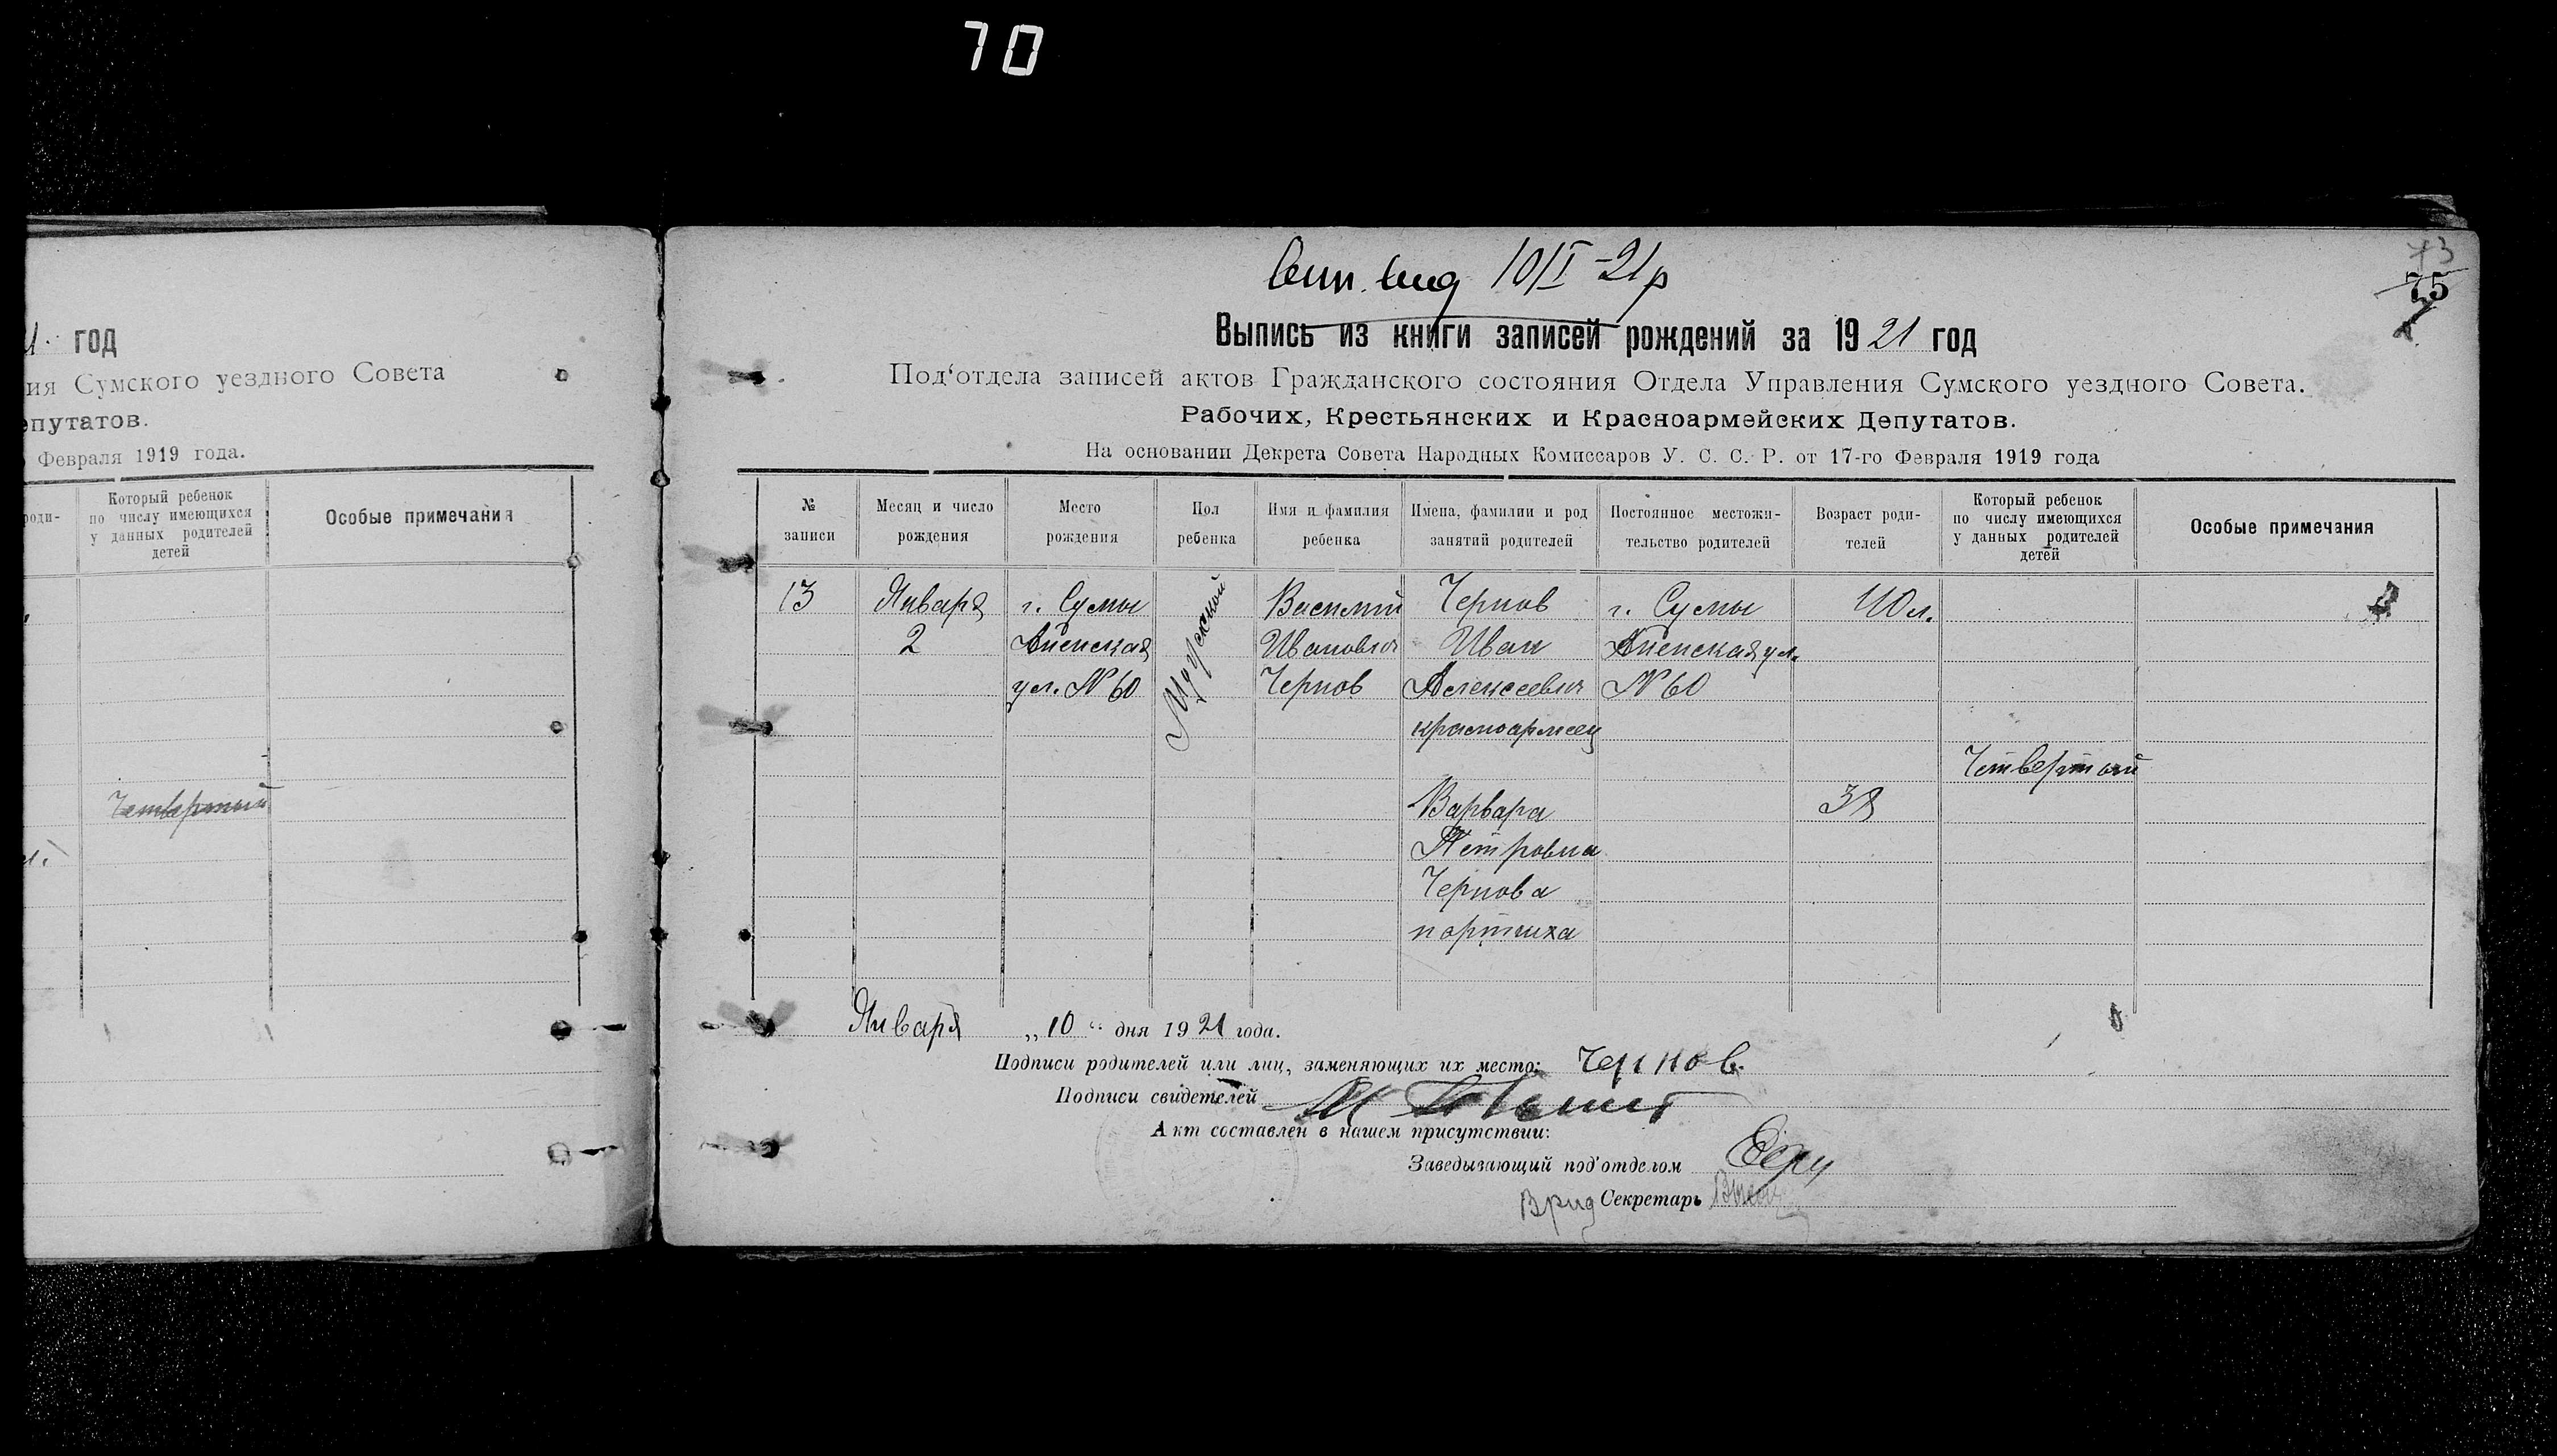 70
73
75
21 год
ия Сумского уездного Совета
епутатов.
Февраля 1919 года.
роди-
Который ребенок
по числу имеющихся
у данных родителей
детей
Особые примечания
Четвертый
10/I-21р
Выпись из книги записей рождений за 1921 год
Под‘отдела записей актов Гражданского состояния Отдела Управления Сумского уездного Совета.
Рабочих, Крестьянских и Красноармейских Депутатов.
На основании Декрета Совета Народных Комиссаров У. С. С. Р. от 17-го Февраля 1919 года
№
записи
Месяц и число
рождения
Место
рождения
Пол
ребенка
Имя и фамилия
ребенка
Имена, фамилии и род
занятий родителей
Постоянное местожи-
тельство родителей
Возраст роди-
телей
Который ребенок
по числу имеющихся
у данных родителей
детей
Особые примечания
13
Января
2
г. Сумы
ул. № 60
Мужской
Василий
Иванович
Чернов
Чернов
Иван
Алексеевич
красноармеец
Варвара
Петровна
Чернова
портниха
г. Сумы
ул.
№ 60
40 л.
38
Четвертый
Января „10“ дня 1921 года.
Подписи родителей или лиц, заменяющих их место: Чернов.
Подписи свидетелей
Акт составлен в нашем присутствии:
Заведывающий под‘отделом
Врид Секретарь